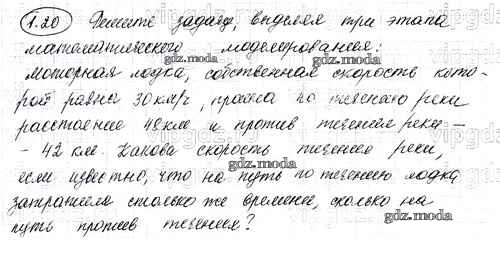 1.20 Решите задачу, выделяя три этапа
математического моделирования:
Моторная лодка, собственная скорость кото-
рой равна 30 км/ч, прошла по течению реки
расстояние 48 км и против течения реки –
- 42 км. Какова скорость течения реки,
если известно, что на путь по течению лодка
затратила столько же времени, сколько на
путь против течения?
gdz.moda
gdz.moda
gdz.moda
gdz.moda
gdz.moda